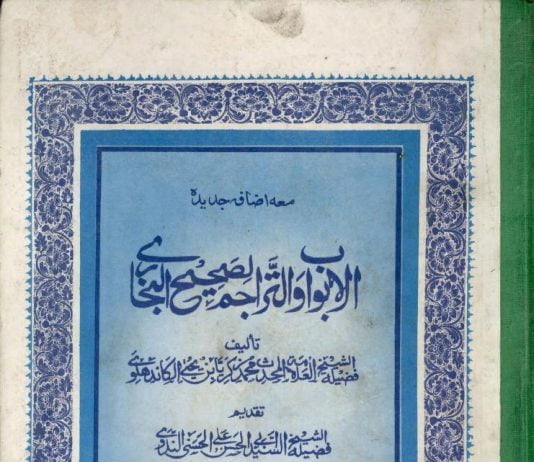 معه اضافہ جدیدہ
الابواب والتراجم لصحیح البخاری
تأليف
فضيلة الشيخ العلامة المحدث محمد زكريا بن يحيى الكاندهلوي
تقديم
فضيلة الشيخ السيد أبي الحسن علي الحسني الندوي